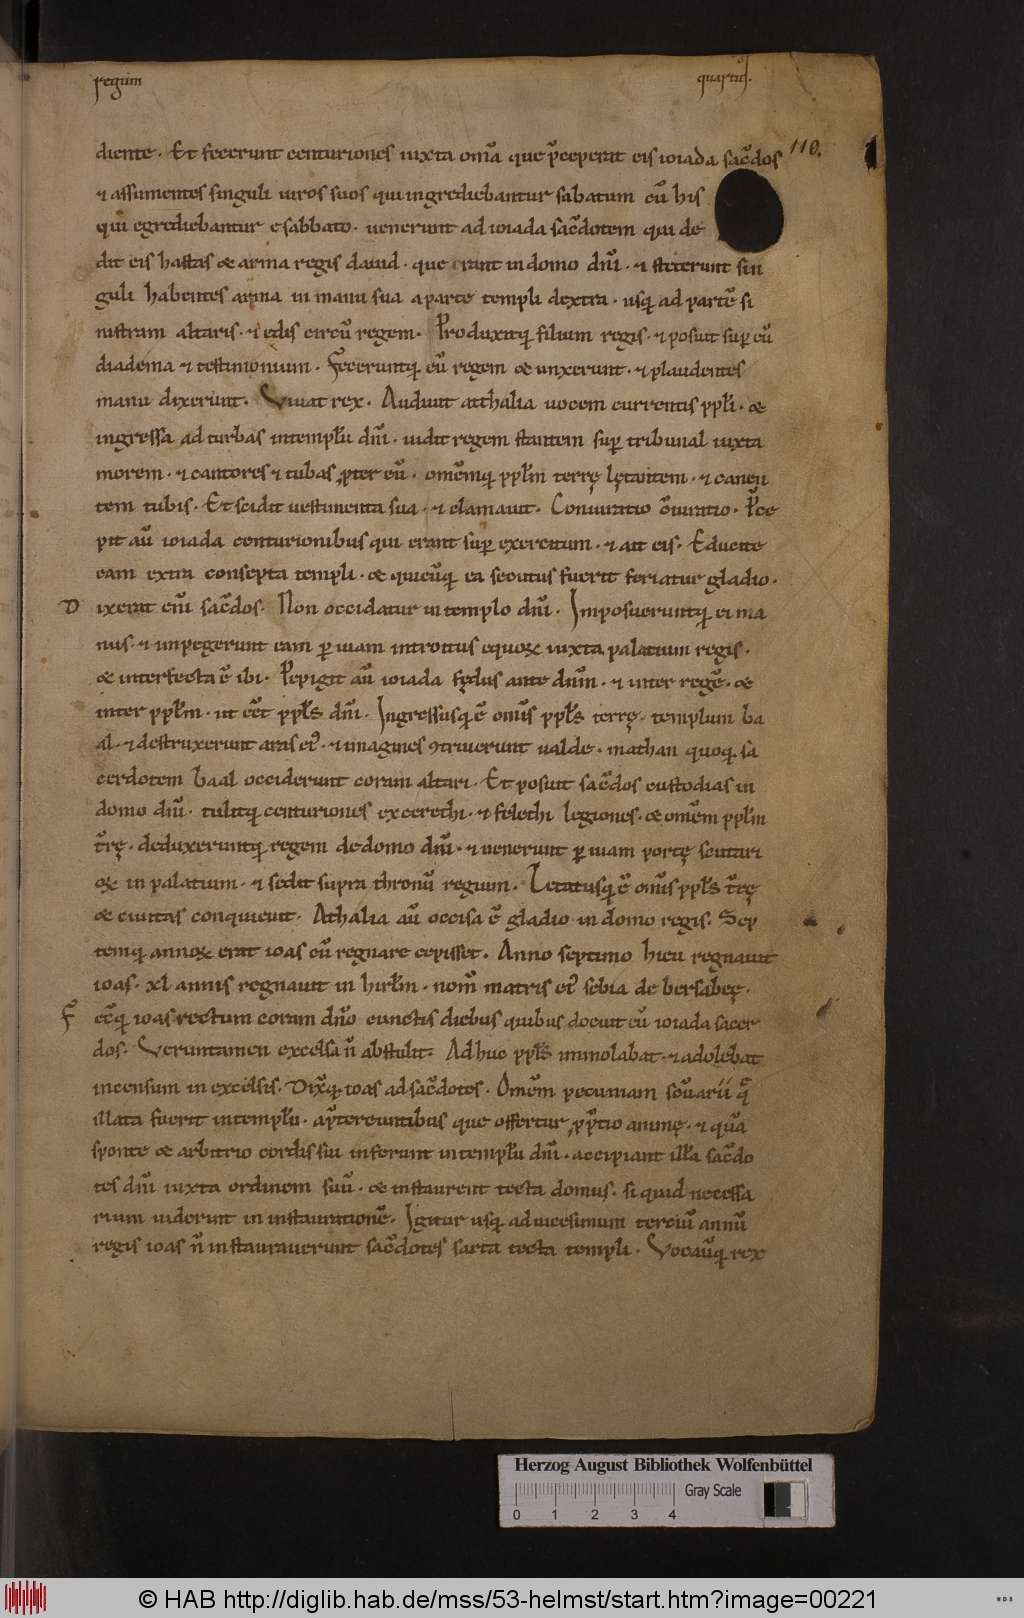 regum quartus.
110.
diente. Et fecerunt centuriones iuxta om̃a que p̃ceperat eis ioiada sac̃dos
⁊ assumentes singuli uiros suos qui ingrediebantur sabatum cũ his
qui egrediebantur e sabbato. uenerunt ad ioiada sac̃dotem qui de
dit eis hastas & arma regis dauid. que erant in domo dñi. ⁊ steterunt sin
guli habentes arma in manu sua a parte templi dextra. usq; ad partẽ si
nistram altaris. ⁊ edis circũ regem. Produxitq; filium regis. ⁊ posuit sup eũ
diadema ⁊ testimonium. Feceruntq; eũ regem & unxerunt. ⁊ plaudentes
manu dixerunt. Viuat rex. Audiuit atthalia uocem currentis pp̃li. &
ingressa ad turbas in templũ dñi. uidit regem stantem sup tribunal iuxta
morem. ⁊ cantores ⁊ tubas ꝓpter eũ. omẽmq; pp̃lm terrę lętantem. ⁊ canen
tem tubis. Et scidit uestimenta sua. ⁊ clamauit. Coniuratio ɔ̃iuratio. P̃ce
pit aũ ioiada centurionibus qui erant sup exercitum. ⁊ ait eis. Educite
eam extra consepta templi. & quicũq; eã secutus fuerit feriatur gladio.
D ixerat eni̅ sac̃dos. Non occidatur in templo dñi. Imposueruntq; ei ma
nus. ⁊ impegerunt eam ꝑ uiam introitus equoꝝ iuxta palatium regis.
& interfecta ẽ ibi. Pepigit aũ ioiada fędus ante dñm. ⁊ inter regẽ. &
inter pp̃lm. ut eẽt pp̃ls dñi. Ingressusq; ẽ omĩs pp̃ls terrę. templum ba
al. ⁊ destruxerunt aras ei᷒. ⁊ imagines ꝯtriuerunt ualde. mathan quoq; sa
cerdotem baal occiderunt coram altari. Et posuit sac̃dos custodias in
domo dñi. tulitq; centuriones ex cerethi. ⁊ felethi legiones. & omẽm pp̃lm
t̃rę. deduxeruntq; regem de domo dñi. ⁊ uenerunt ꝑ uiam portę scutari
oꝝ in palatium. ⁊ sedit supra thronũ regum. Letatusq; ẽ omĩs pp̃ls t̃rę
& ciuitas conquieuit. Athalia aũ occisa ẽ gladio in domo regis. Sep
temq; annoꝝ erat ioas cũ regnare cepisset. Anno septimo hieu regnauit
ioas. xl annis regnauit in hirl̃m. nom̃ matris ei᷒ sebia de bersabeę.
F ecq̃; ioas rectum coram dño cunctis diebus quibus docuit eũ ioiada sacer
dos. Veruntamen excelsa ñ abstulit. Adhuc pp̃ls immolabat. ⁊ adolebat
incensum in excelsis. Dixq̃; ioas ad sac̃dotes. Omẽm pecuniam sc̃oarii q̃
illata fuerit in templũ. a p̃tereuntibus que offertur ꝓ p̃tio animę. ⁊ quã
sponte & arbitrio cordis sui inferunt in templũ dñi. accipiant illã sac̃do
tes dñi iuxta ordinem suũ. & instaurent tecta domus. si quid necessa
rium uiderint in instaurationẽ. Igitur usq; ad uicesimum terciũ annũ
regis ioas ñ instaurauerunt sac̃dotes sarta tecta templi. Vocauĩq; rex
Herzog August Bibliothek Wolfenbüttel
Gray Scale
0 1 2 3 4
© HAB http://diglib.hab.de/mss/53-helmst/start.htm?image=00221